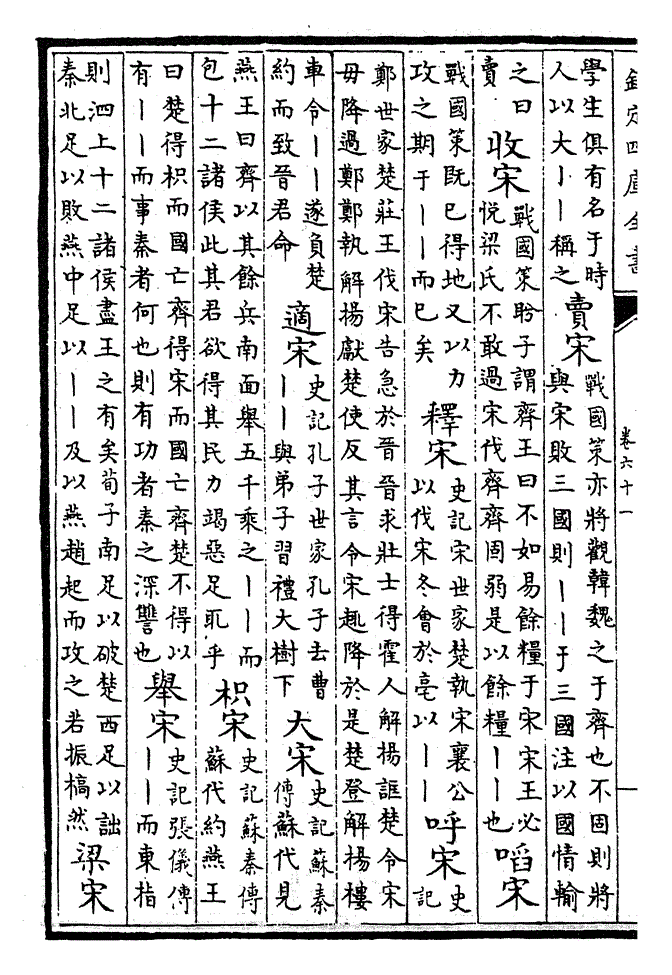 欽定四庫全書
卷六十一
學生俱有名于時人以大丨丨稱之賣宋戰國策亦將觀韓魏之于齊也不固則將與宋敗三國則丨丨于三國注以國情輸
之曰賣收宋戰國策盼子謂齊王曰不如易餘糧于宋宋王必悦梁氏不敢過宋伐齊齊固弱是以餘糧丨丨也啗宋
戰國策既已得地又以力攻之期于丨丨而已矣釋宋史記宋世家楚執宋襄公以伐宋冬會於亳以丨丨呼宋史記
鄭世家楚莊王伐宋告急於晉晉求壯士得霍人解揚誑楚令宋毋降過鄭鄭執解揚獻楚使反其言令宋趣降於是楚登解揚樓
車令丨丨遂負楚約而致晉君命適宋史記孔子世家孔子去曹丨丨與弟子習禮大樹下大宋史記蘇秦傳蘇代見
燕王曰齊以其餘兵南面舉五千乘之丨丨而包十二諸侯此其君欲得其民力竭惡足取乎枳宋史記蘇秦傳蘇代約燕王
曰楚得枳而國亡齊得宋而國亡齊楚不得以有丨丨而事秦者何也則有功者秦之深讐也舉宋史記張儀傳丨丨而東指
則泗上十二諸侯盡王之有矣荀子南足以破楚西足以詘秦北足以敗燕中足以丨丨及以燕趙起而攻之若振槁然梁宋